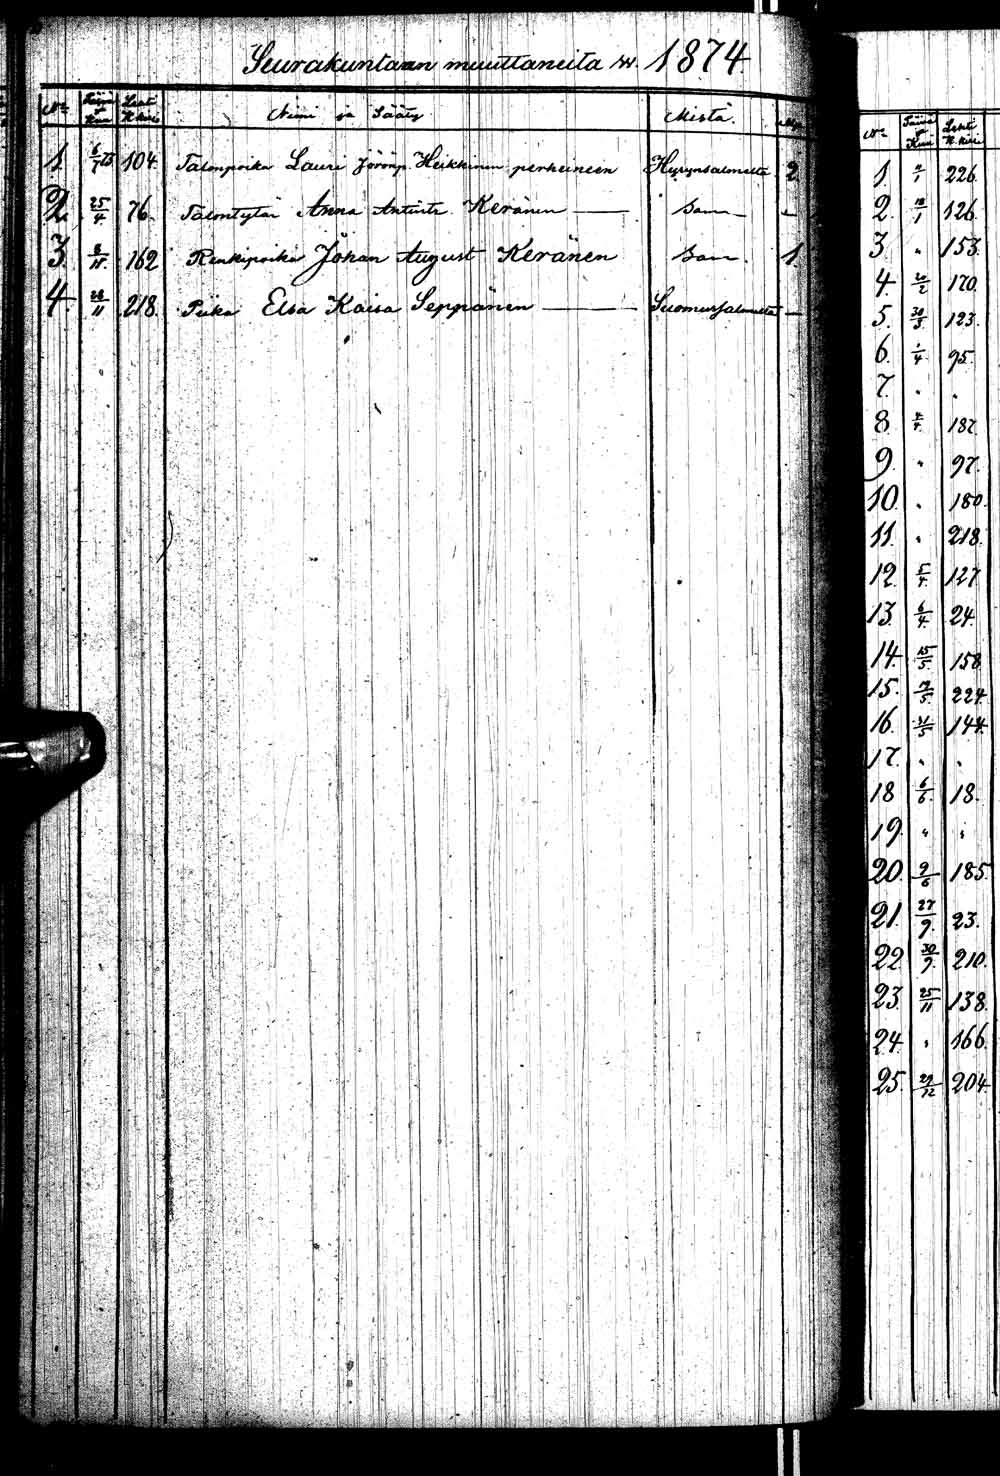 Seurakuntaan muuttaneita w. 1874
No Päivä ja Kuu Lehti K. kirj. Nimi ja Sääty Mistä.
1. 6/1 104. Talonpoika Lauri Jöränp. Heikkinen perheineen Hyrynsalmelta 2
2. 25/4 76. Talontytär Anna Antintr. Keränen — Sam — –
3. 8/11 162 Renkipoika Johan August Keränen Sam. 1
4. 28/11 218. Piika Elsa Kaisa Seppänen — Suomussalmelta –
No Päivä ja Kuu Lehti K. kirj.
1 /1 226.
2 18/1 126.
3 " 153.
4 20/2 170.
5. 30/3. 123.
6. 1/4. 95.
7. " "
8 4/4. 187.
9. " 97.
10. " 180.
11. " 218.
12 5/4. 127
13. 6/4. 24.
14. 15/5. 158
15. 19/5. 224.
16. 31/5 144.
17. " "
18 6/6. 18.
19. " "
20. 9/6 185.
21. 27/9. 23.
22. 30/9. 210.
23. 25/11 138.
24. " 166.
25. 29/12 204.